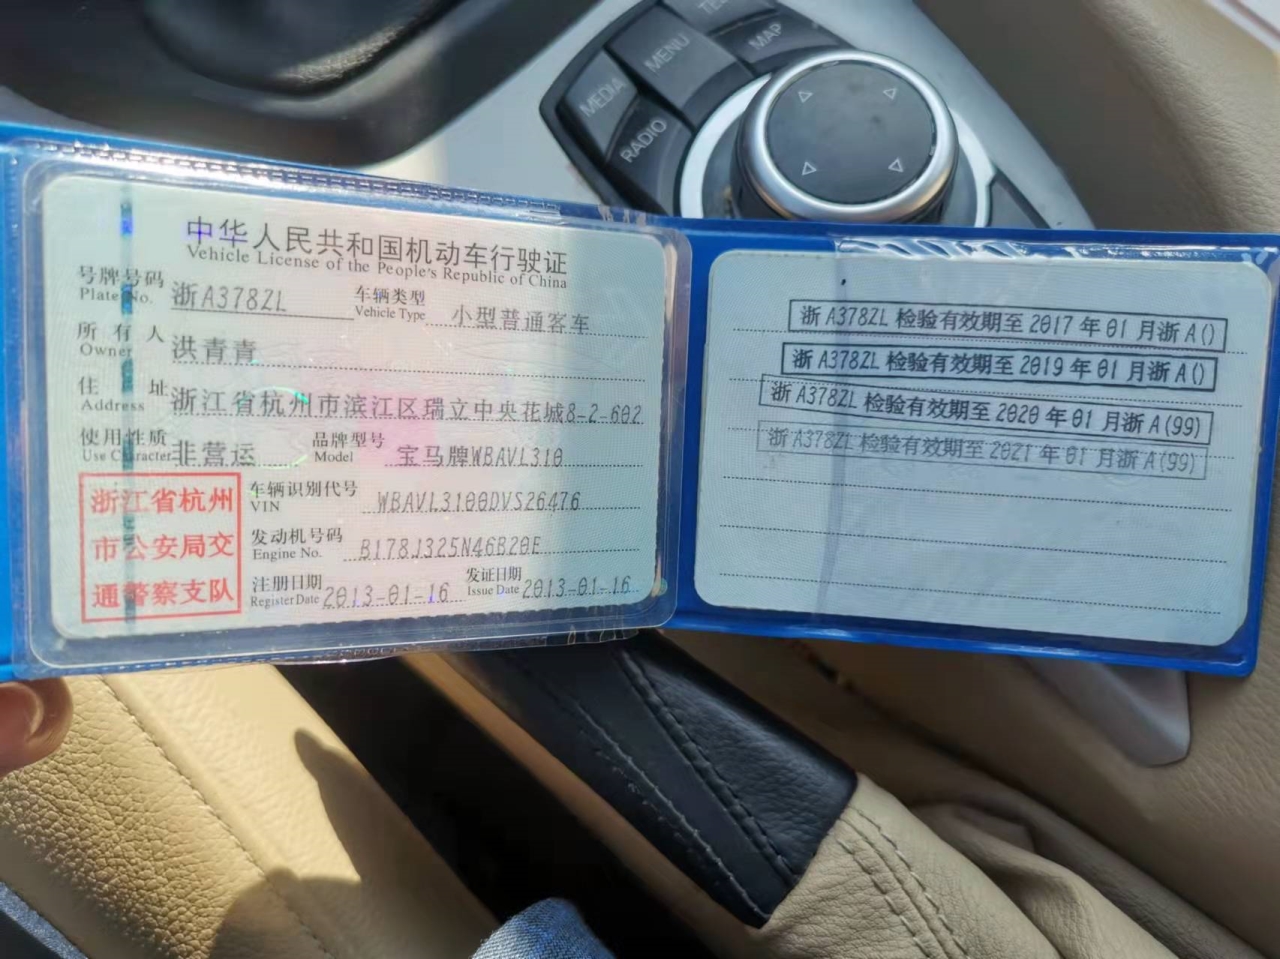 MENU
MAP
MEDIA
RADIO
中华人民共和国机动车行驶证
Vehicle License of the People's Republic of China
号牌号码 浙A378ZL 车辆类型 小型普通客车
Plate No. Vehicle Type
所有人 洪青青
Owner
住址 浙江省杭州市滨江区瑞立中央花城8-2-602
Address
使用性质 非营运 品牌型号 宝马牌WBAVL310
Use Character Model
浙江省杭州
市公安局交
通警察支队
车辆识别代号 WBAVL3100DVS26476
VIN
发动机号码 B178J325N46B20E
Engine No.
注册日期 2013-01-16 发证日期 2013-01-16
Register Date Issue Date
浙A378ZL 检验有效期至 2017 年 01 月浙 A()
浙A378ZL 检验有效期至 2019 年 01 月浙 A()
浙A378ZL 检验有效期至 2020 年 01 月浙 A(99)
浙A378ZL 检验有效期至 2021 年 01 月浙 A(99)